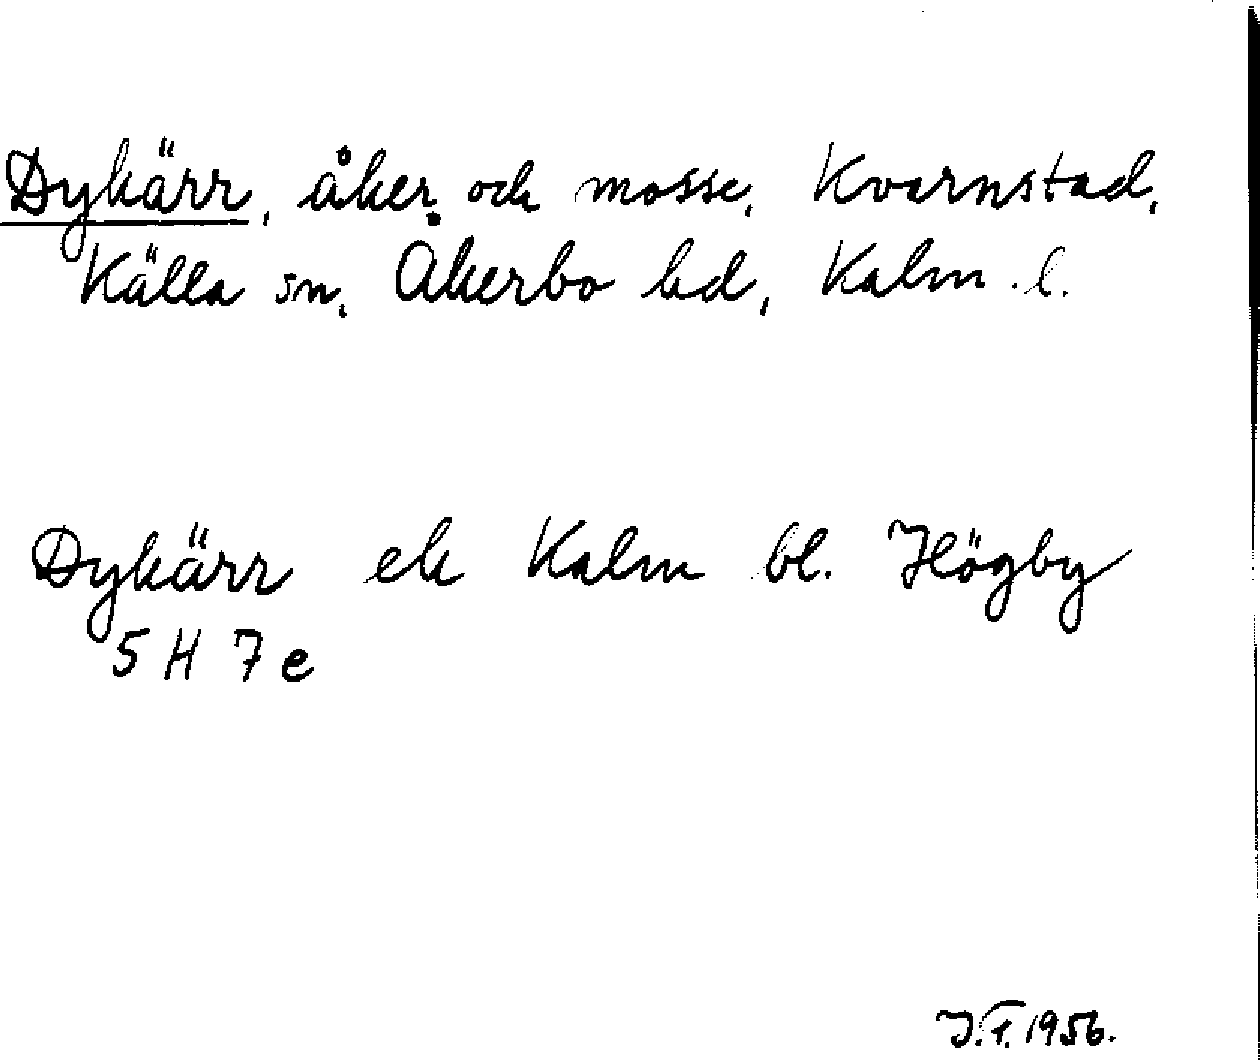 Dykärr, åker och mosse, Kvarnstad,
Källa sn, Åkerbo hd, Kalm. l.
Dykärr ek Kalm bl. Högby
5 H 7 e
J.T. 1956.